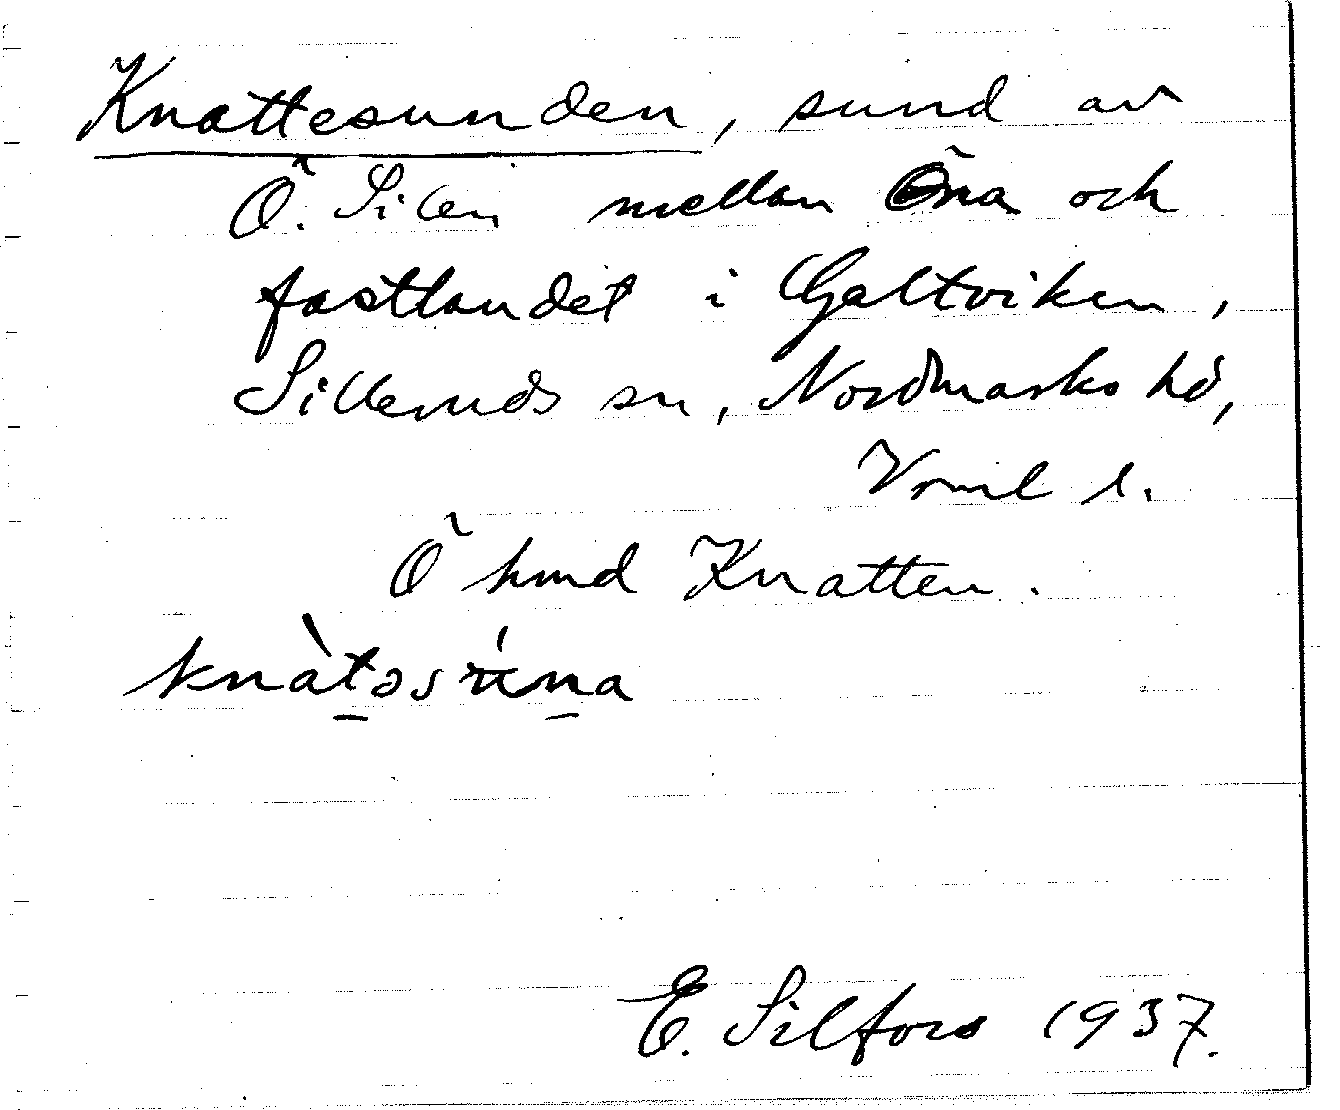 Knattesunden, sund av
Ö. Silen mellan Öna och
fastlandet i Galtviken,
Silleruds sn, Nordmarks hd,
Vrml l.
Ö kring Knatten.
knàtəsúna
E. Silfors 1937.